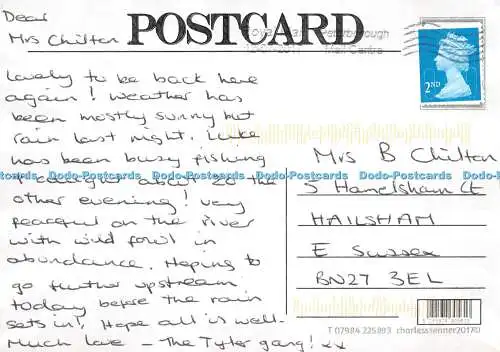 Dear
Mrs Chilton
POSTCARD
Peterborough
Mail Centre
2ND
Lovely to be back here
again! Weather has
been mostly sunny but
rain last night. Luke
has been busy fishing
& caught about 20 the
other evening! Very
peaceful on the river
with wild fowl in
abundance. Hoping to
go further upstream
today before the rain
sets in! Hope all is well-
Much love - The Tyler gang! xx
Mrs B Chilton
5 Hamelsham Ct
HAILSHAM
E Sussex
BN27 3EL
T 07984 225893 charlessenner2017©
Dodo-Postcards Dodo-Postcards Dodo-Postcards Dodo-Postcards Dodo-Postcards